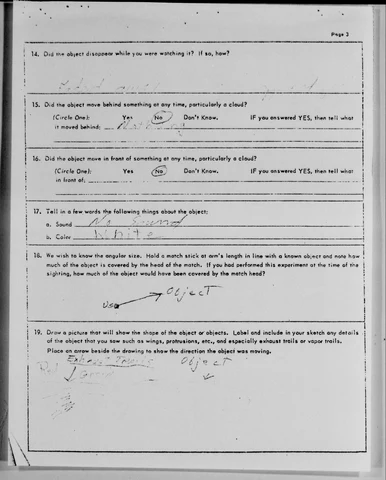 Page 3
14. Did the object disappear while you were watching it? If so, how?
15. Did the object move behind something at any time, particularly a cloud?
(Circle One): Yes No Don't Know. IF you answered YES, then tell what
it moved behind:
16. Did the object move in front of something at any time, particularly a cloud?
(Circle One): Yes No Don't Know. IF you answered YES, then tell what
in front of:
17. Tell in a few words the following things about the object:
a. Sound No Sound
b. Color White
18. We wish to know the angular size. Hold a match stick at arm's length in line with a known object and note how
much of the object is covered by the head of the match. If you had performed this experiment at the time of the
sighting, how much of the object would have been covered by the match head?
Object
19. Draw a picture that will show the shape of the object or objects. Label and include in your sketch any details
of the object that you saw such as wings, protrusions, etc., and especially exhaust trails or vapor trails.
Place an arrow beside the drawing to show the direction the object was moving.
Exhaust Object